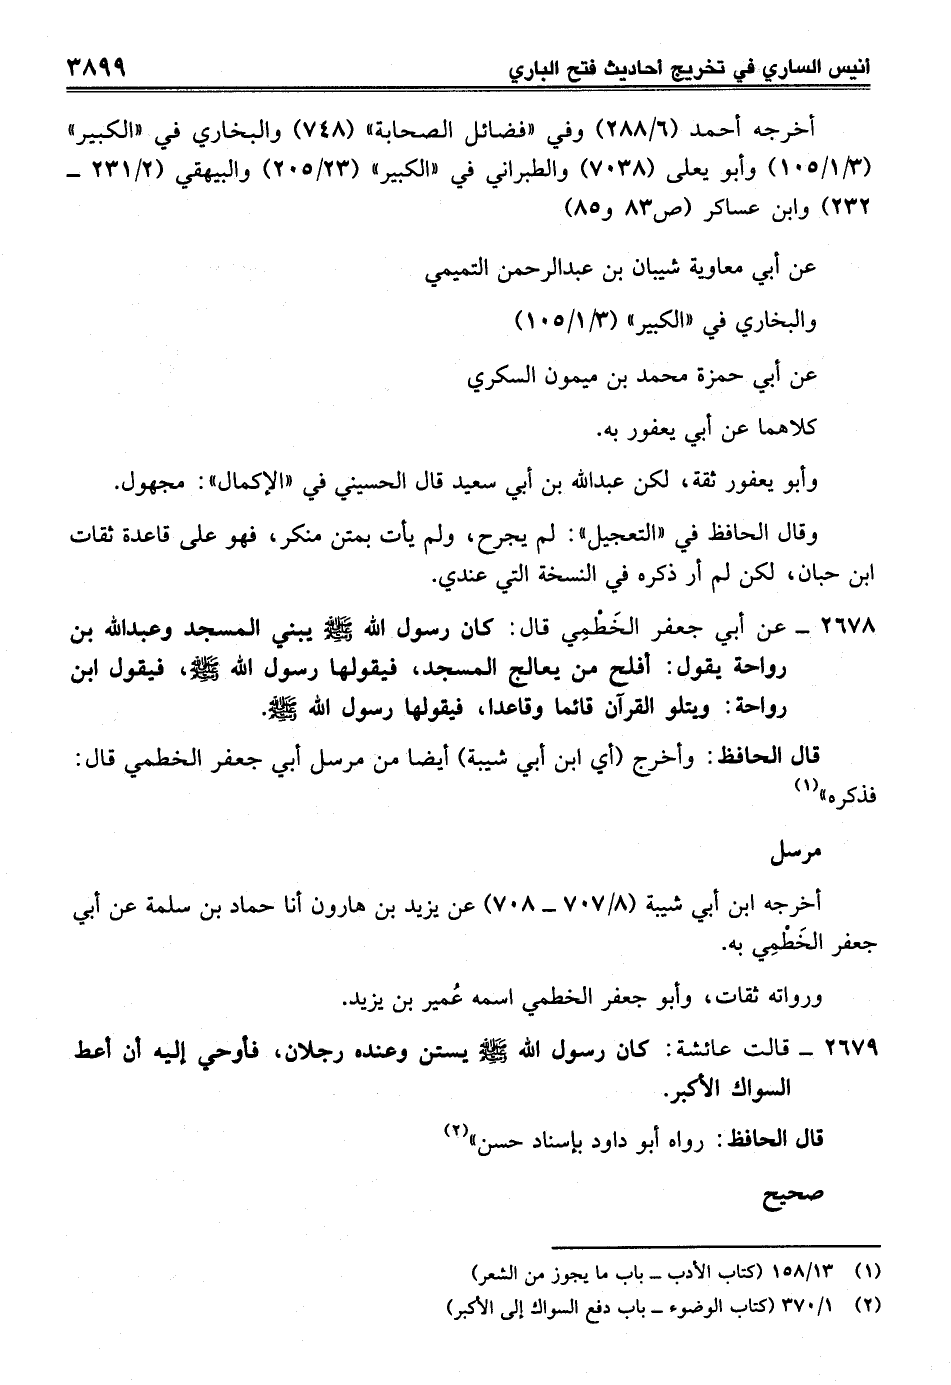 أنيس الساري في تخريج أحاديث فتح الباري ٣٨٩٩
أخرجه أحمد (٢٨٨/٦) وفي «فضائل الصحابة» (٧٤٨) والبخاري في «الكبير»
(١٠٥/١/٣) وأبو يعلى (٧٠٣٨) والطبراني في «الكبير» (٢٠٥/٢٣) والبيهقي (٢٣١/٢ ـ
٢٣٢) وابن عساكر (ص٨٣ و٨٥)
عن أبي معاوية شيبان بن عبدالرحمن التميمي
والبخاري في «الكبير» (١٠٥/١/٣)
عن أبي حمزة محمد بن ميمون السكري
كلاهما عن أبي يعفور به.
وأبو يعفور ثقة، لكن عبدالله بن أبي سعيد قال الحسيني في «الإكمال»: مجهول.
وقال الحافظ في «التعجيل»: لم يجرح، ولم يأت بمتن منكر، فهو على قاعدة ثقات
ابن حبان، لكن لم أر ذكره في النسخة التي عندي.
٢٦٧٨ ـ عن أبي جعفر الخَطْمِي قال: كان رسول الله ﷺ يبني المسجد وعبدالله بن
رواحة يقول: أفلح من يعالج المسجد، فيقولها رسول الله ﷺ، فيقول ابن
رواحة: ويتلو القرآن قائما وقاعدا، فيقولها رسول الله ﷺ.
قال الحافظ: وأخرج (أي ابن أبي شيبة) أيضا من مرسل أبي جعفر الخطمي قال:
فذكره»(١)
مرسل
أخرجه ابن أبي شيبة (٧٠٧/٨ ـ ٧٠٨) عن يزيد بن هارون أنا حماد بن سلمة عن أبي
جعفر الخَطْمِي به.
ورواته ثقات، وأبو جعفر الخطمي اسمه عُمير بن يزيد.
٢٦٧٩ ـ قالت عائشة: كان رسول الله ﷺ يستن وعنده رجلان، فأوحي إليه أن أعط
السواك الأكبر.
قال الحافظ: رواه أبو داود بإسناد حسن»(٢)
صحيح
(١) ١٥٨/١٣ (كتاب الأدب ـ باب ما يجوز من الشعر)
(٢) ٣٧٠/١ (كتاب الوضوء ـ باب دفع السواك إلى الأكبر)